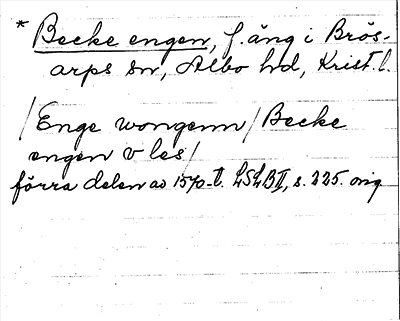 * Becke engen, f. äng i Brös-
arps sn, Albo hd, Krist. l.
/Enge wongenn/Becke
engen v les/
förra delen av 1570-t. LSLB II, s. 225. orig